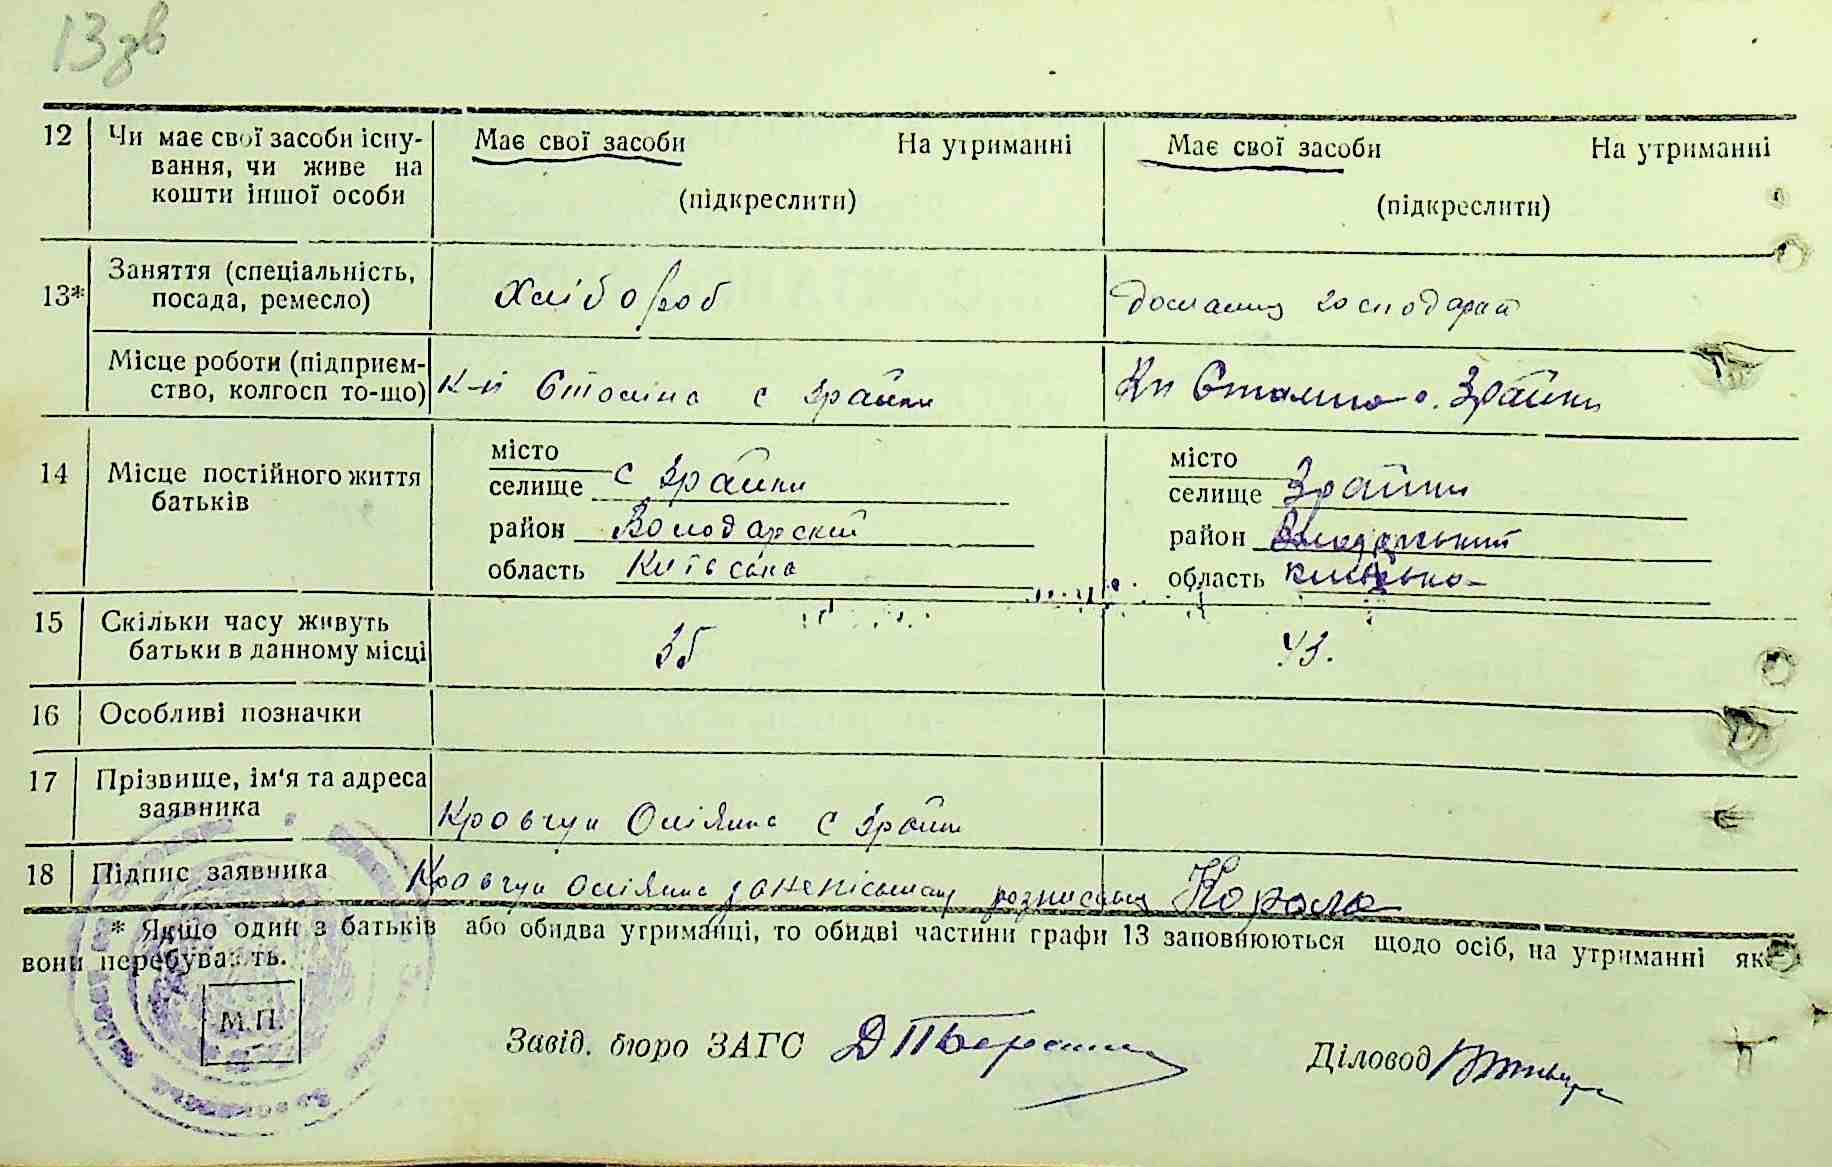 13 зв
12 Чи має свої засоби існу- Має свої засоби На утриманні Має свої засоби На утриманні
вання, чи живе на
кошти іншої особи (підкреслити) (підкреслити)
13* Заняття (спеціальність,
посада, ремесло) Хлібороб домашнє господарст
Місце роботи (підприєм-
ство, колгосп то-що) К-п Сталіна с Зрайки Кп Сталіна с. Зрайки
14 Місце постійного життя
батьків
місто місто
селище с Зрайки селище Зрайки
район Володарский район Володарський
область Київська область Київська
15 Скільки часу живуть
батьки в данному місці 36 43.
16 Особливі позначки
17 Прізвище, ім'я та адреса
заявника Кровчун с Зрайки
18 Підпис заявника Кровчун
* Якщо один з батьків або обидва утриманці, то обидві частини графи 13 заповнюються щодо осіб, на утриманні як
вони перебувають.
М.П.
Завід. бюро ЗАГС Діловод